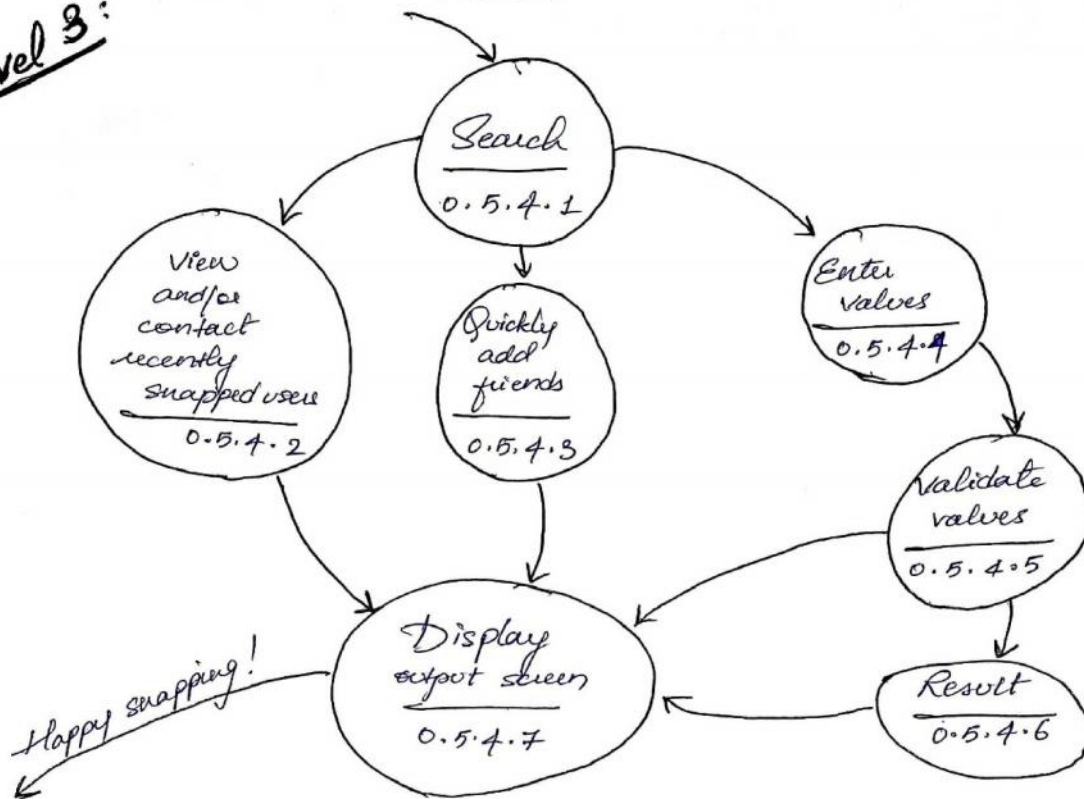 vel 3:
Search
0.5.4.1
View
and/or
contact
recently
snapped users
0.5.4.2
Quickly
add
friends
0.5.4.3
Enter
values
0.5.4.4
Validate
values
0.5.4.5
Display
output screen
0.5.4.7
Result
0.5.4.6
Happy snapping!